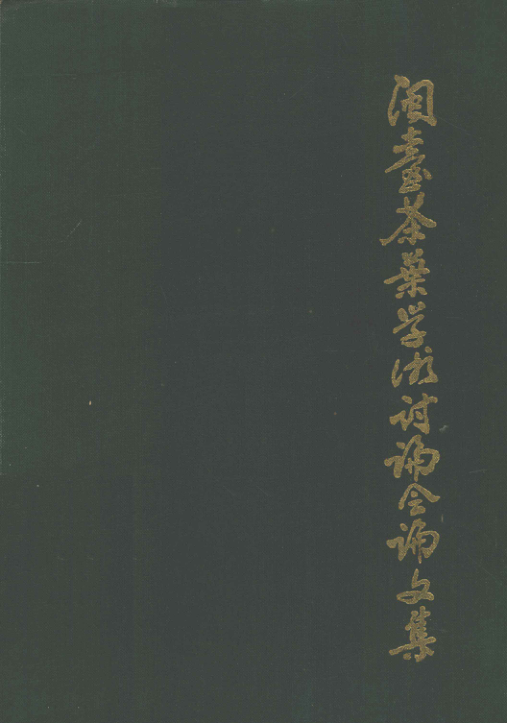 闽臺茶葉学术讨论会论文集